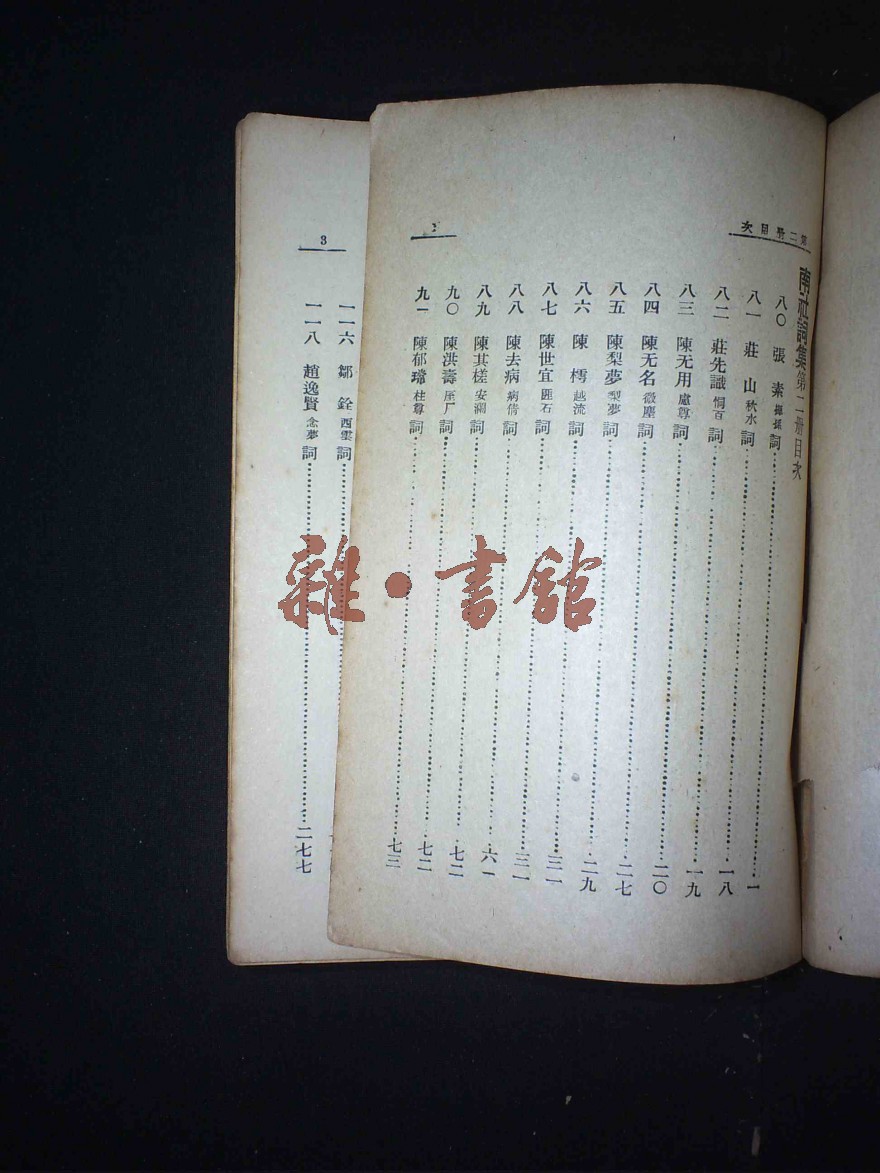 第二冊目次
2
南社詞集第二冊目次
八〇 張 素 揮孫 詞 一
八一 莊 山 秋水 詞
八二 莊先識 恫百 詞 一八
八三 陳无用 虛尊 詞 一九
八四 陳无名 微塵 詞 二〇
八五 陳梨夢 梨夢 詞 二七
八六 陳 樗 越流 詞 二九
八七 陳世宜 匪石 詞 三一
八八 陳去病 病倩 詞 三一
八九 陳其槎 安瀾 詞 六一
九〇 陳洪壽 厔厂 詞 七二
九一 陳郁瑺 柱尊 詞 七二
七三
3
一一六 鄒 銓 酉雲 詞
一一八 趙逸賢 念夢 詞 二七七
雜·書館